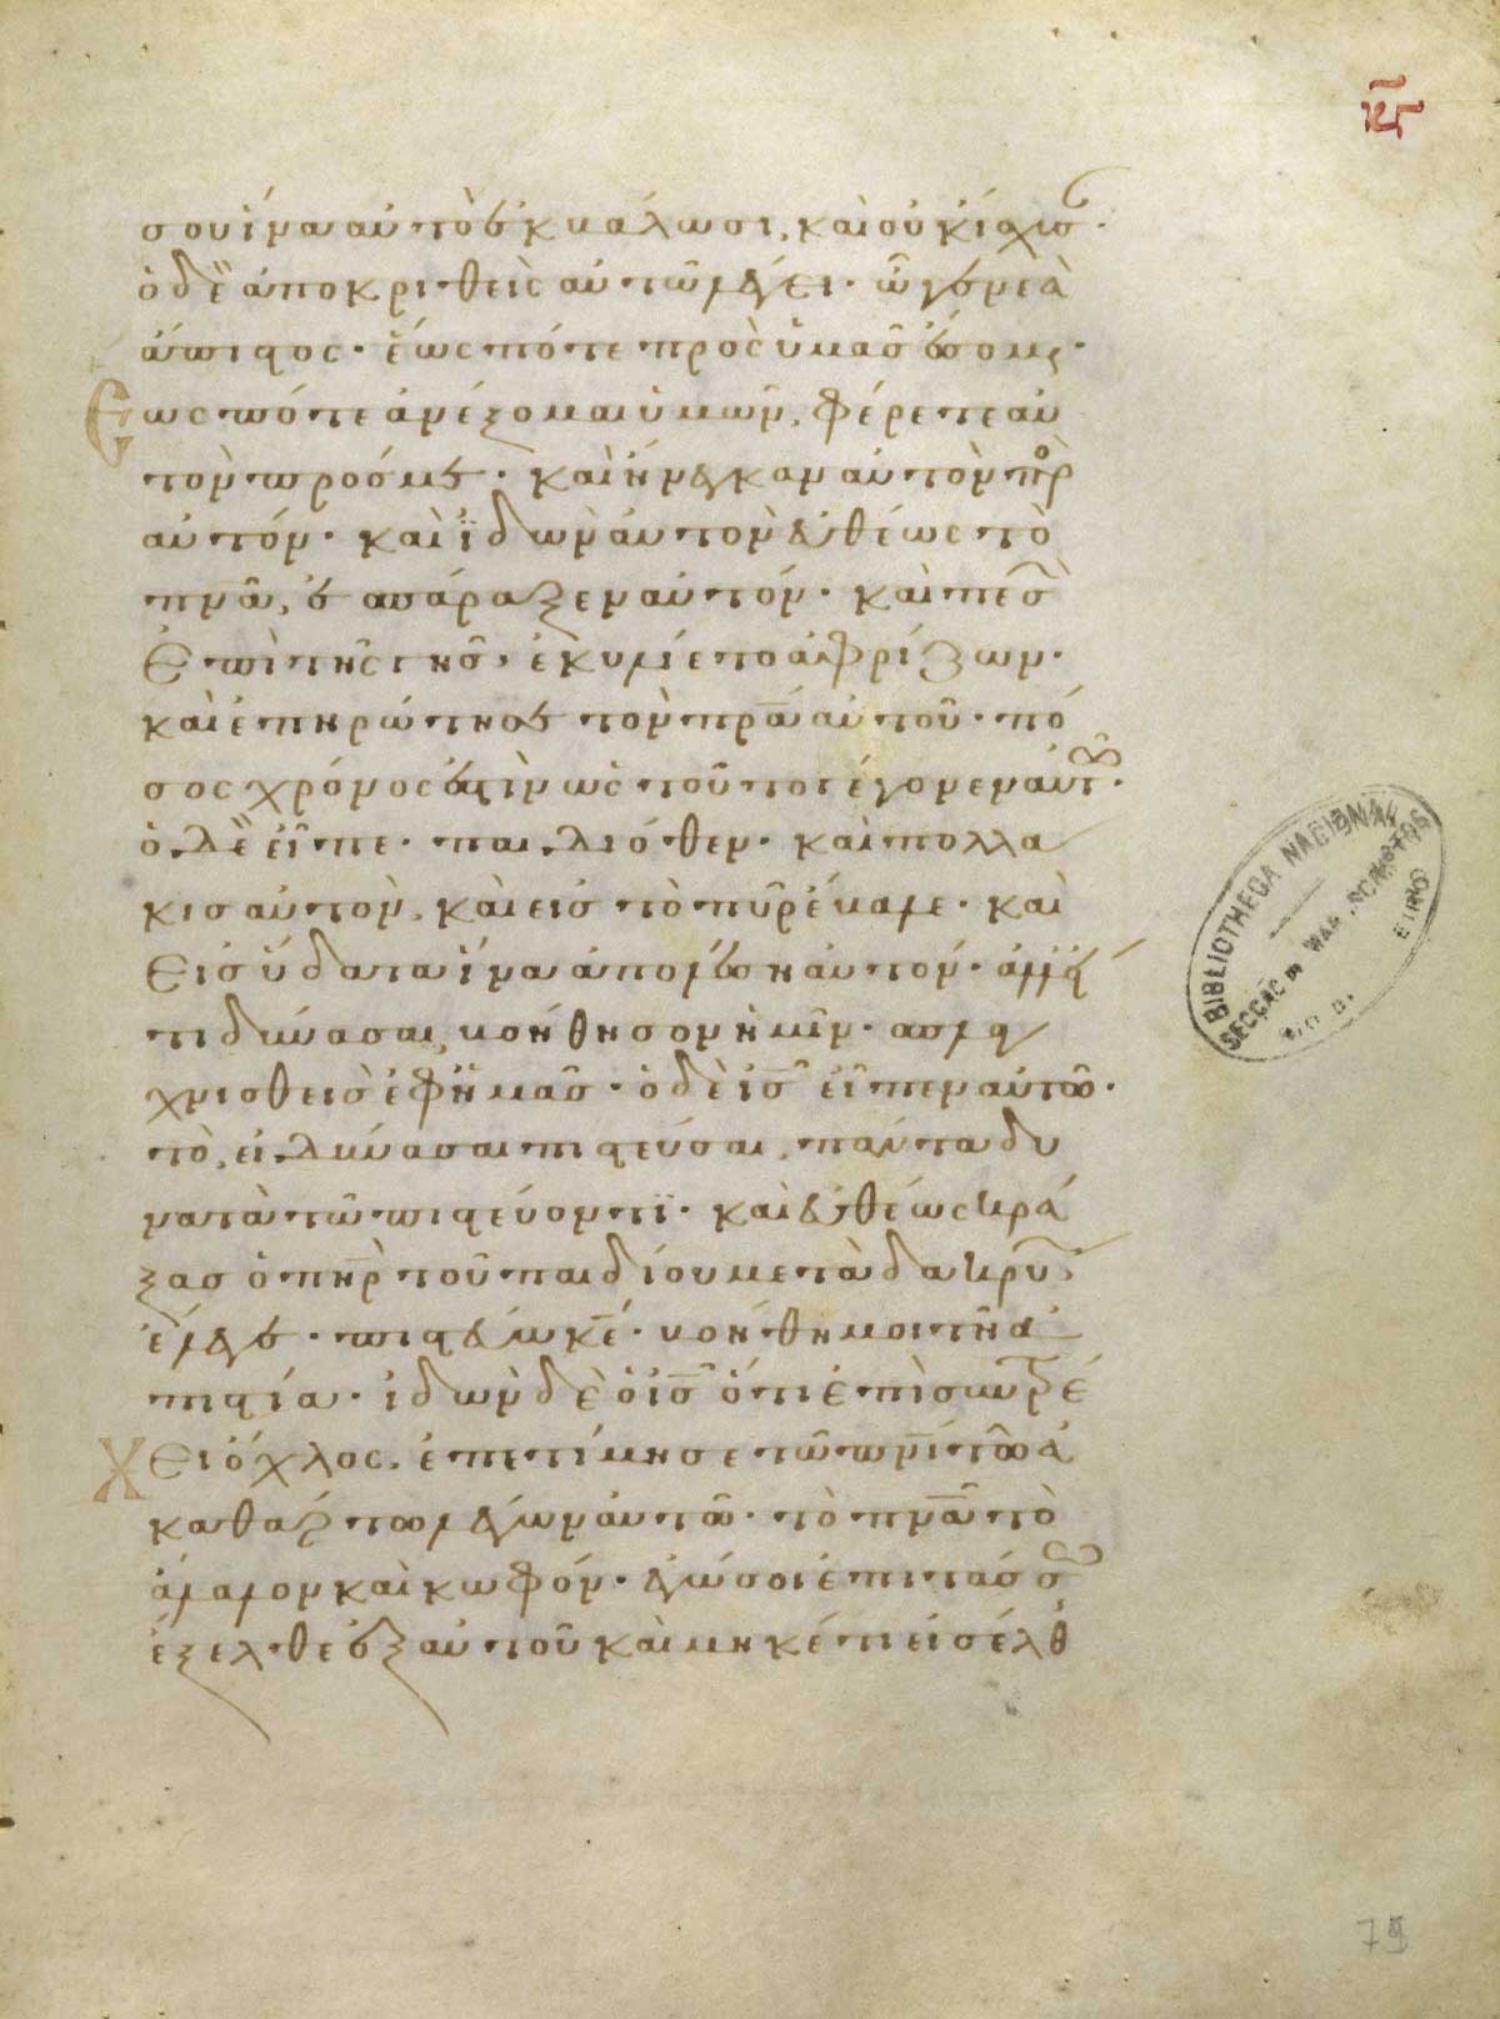 κϛ
σου ἵνα αὐτὸ ἐκβάλωσι, καὶ οὐκ ἴσχυσ·
ὁ δὲ ἀποκριθεὶς αὐτῶ λέγει· ὦ γενεὰ
ἄπιστος· ἕως πότε πρὸς ὑμᾶς ἔσομαι·
Ἕως πότε ἀνέξομαι ὑμῶν, φέρετε αὐ
τὸν πρός με· καὶ ἤνεγκαν αὐτὸν πρ
αὐτόν· καὶ ἰδὼν αὐτὸν εὐθέως τὸ
πνα, ἐσπάραξεν αὐτόν· καὶ πεσ
ἐπὶ τῆς γῆς, ἐκυλίετο ἀφρίζων·
καὶ ἐπηρώτησε τὸν πρα αὐτοῦ· πό
σος χρόνος ἐστὶν ὡς τοῦτο γέγονεν αὐτῶ·
ὁ δὲ εἶπε· παιδιόθεν· καὶ πολλα
κις αὐτὸν, καὶ εἰς τὸ πῦρ ἔβαλε· καὶ
εἰς ὕδατα ἵνα ἀπολέση αὐτόν· ἀλλ εἴ
τι δύνασαι, βοήθησον ἡμῖν· σπλα
χνισθεὶς ἐφ ἡμᾶς· ὁ δὲ ις εἶπεν αὐτῶ·
τὸ, εἰ δύνασαι πιστεύσαι, πάντα δυ
νατὰ τῶ πιστεύοντι· καὶ εὐθέως κρά
ξας ὁ πηρ τοῦ παιδίου μετὰ δακρύ
ἔλεγε· πιστεύω κε· βοήθη μοι τῆ ἀ
πιστία· ἰδὼν δὲ ὁ ις ὅτι ἐπισυντρέ
χει ὁ ὄχλος, ἐπετίμησε τῶ πνι τῶ ἀ
καθάρτω λέγων αὐτῶ· τὸ πνα τὸ
ἄλαλον καὶ κωφόν· ἐγώ σοι ἐπιτάσσω
ἔξελθε ἐξ αὐτοῦ καὶ μηκέτι εἰσέλθ
BIBLIOTHECA NACIONAL
SECÇÃO DE MANUSCRIPTOS
79